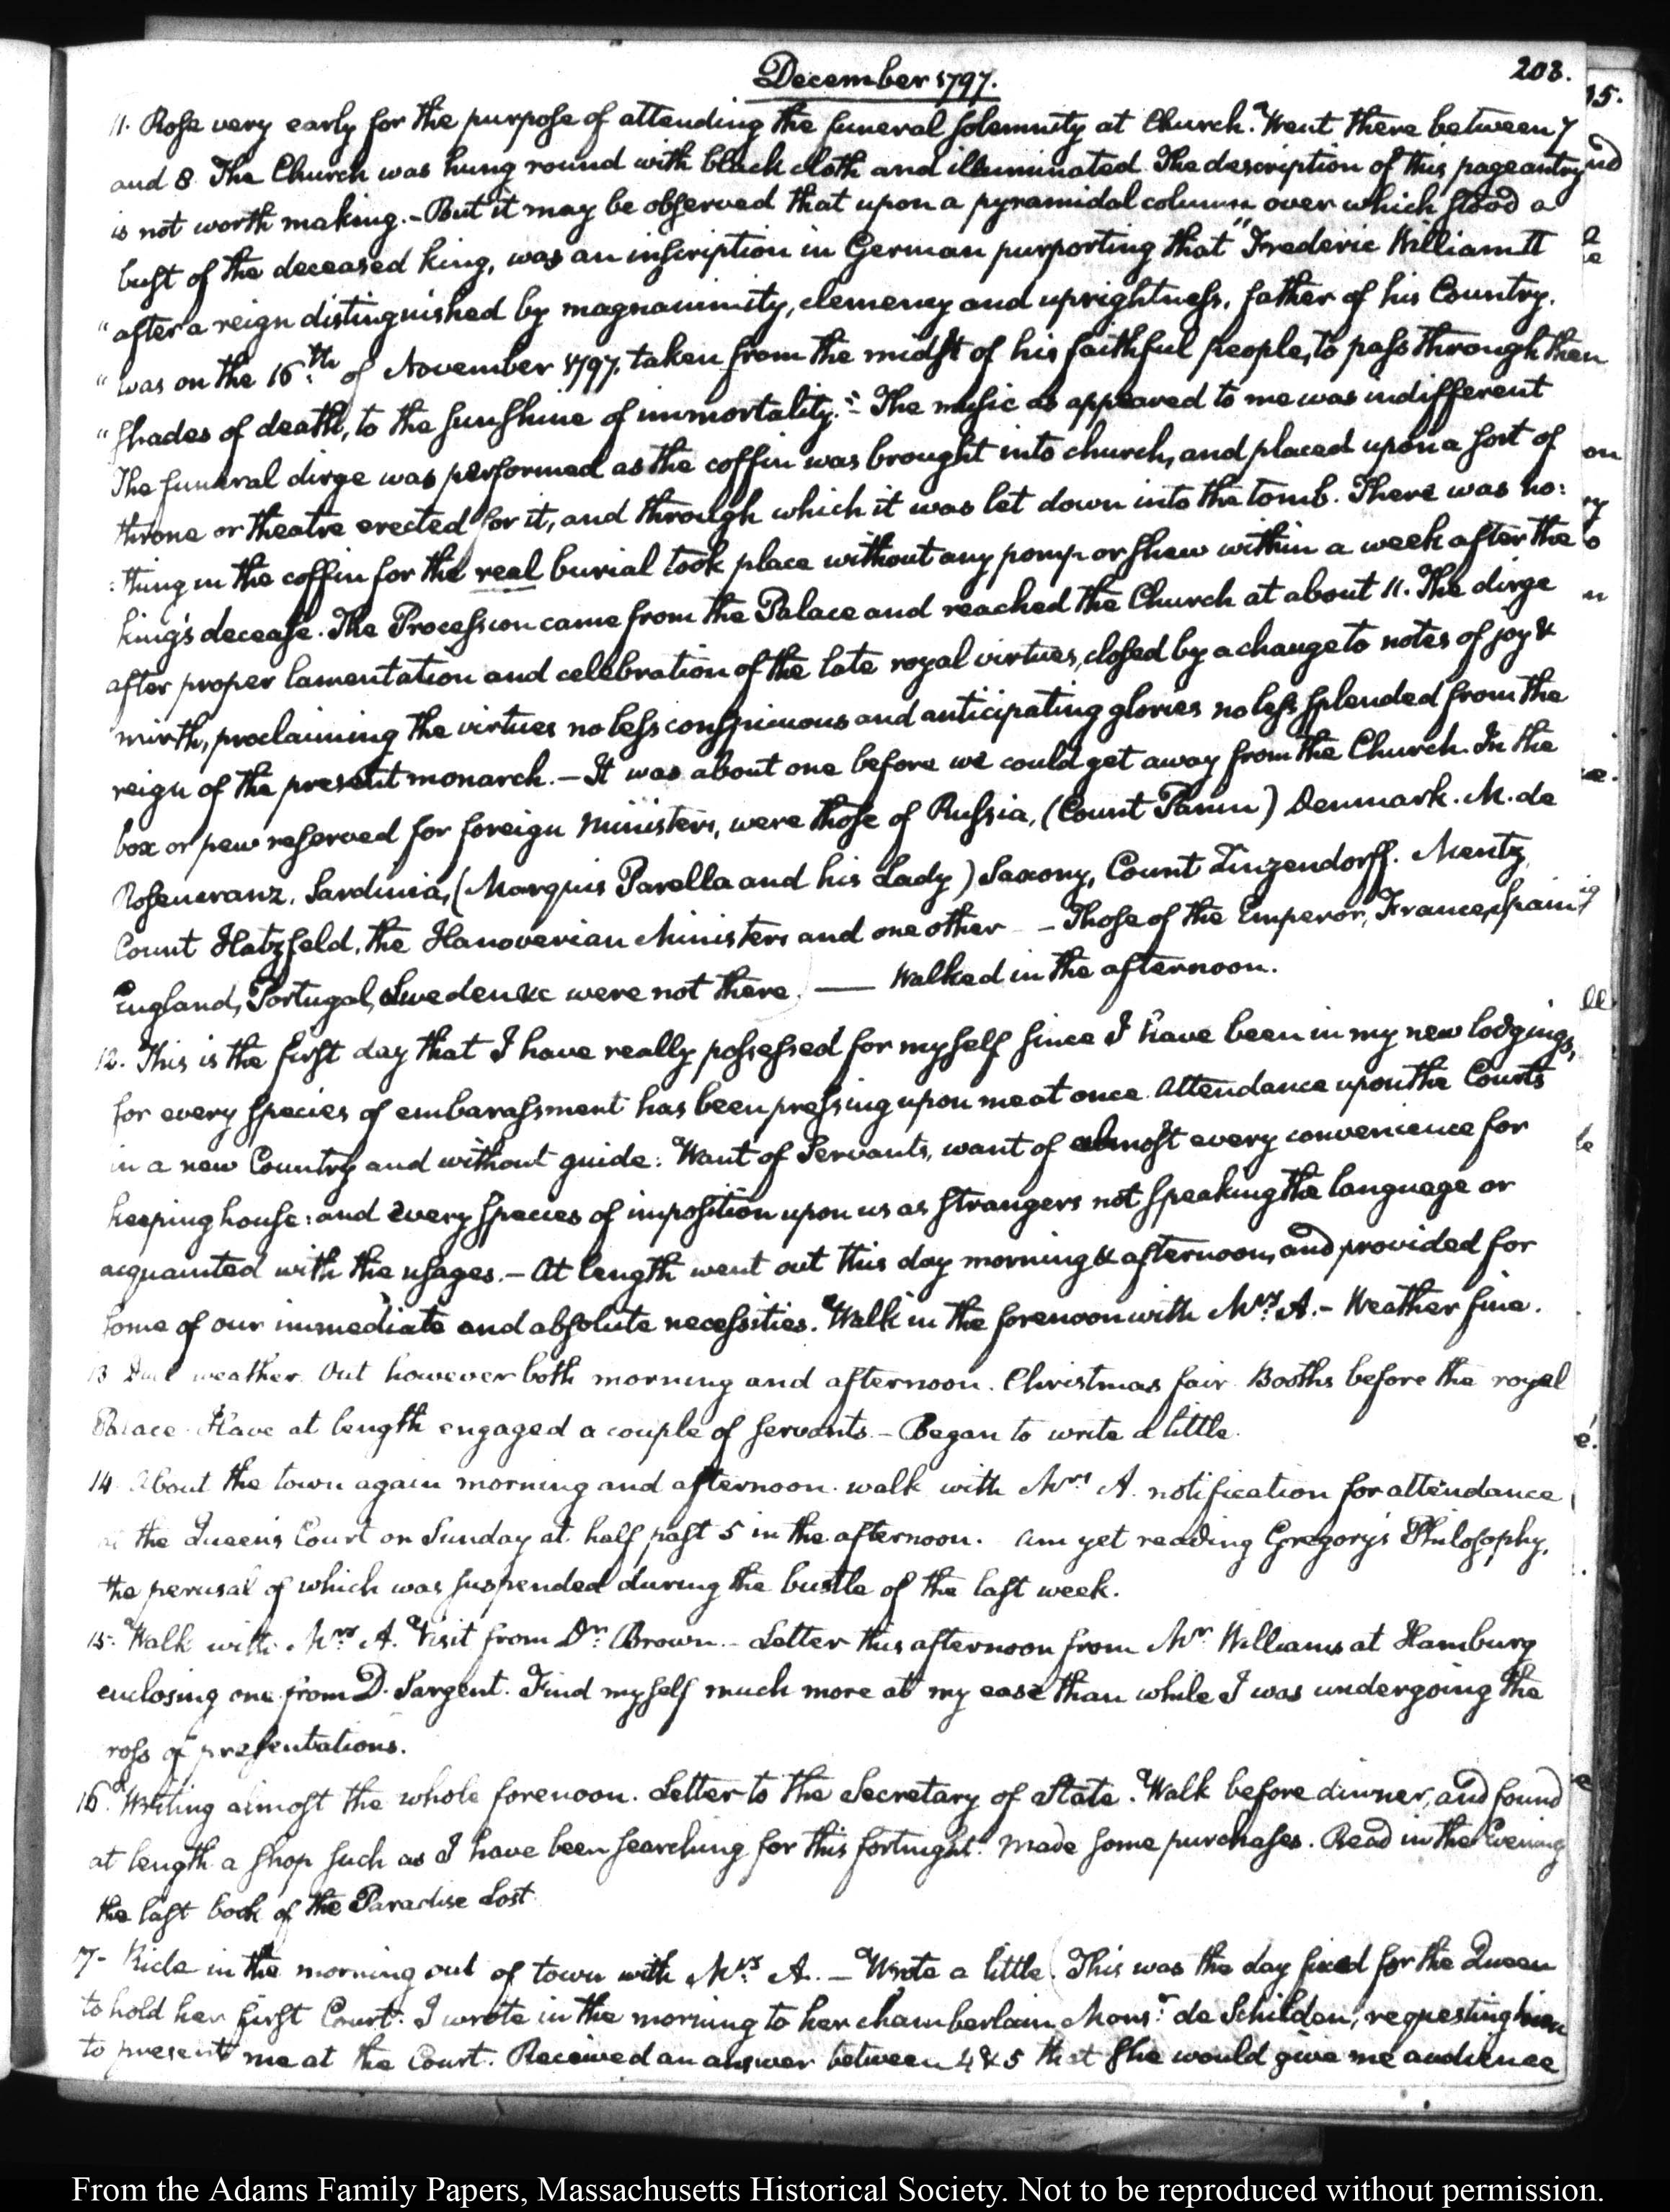 December 1797.
208.
11. Rose very early for the purpose of attending the funeral solemnity at Church. Went there between 7
and 8. The Church was hung round with black cloth and illuminated. The description of this pageantry
is not worth making. - But it may be observed that upon a pyramidal column over which stood a
bust of the deceased king, was an inscription in German purporting that "Frederic William II
"after a reign distinguished by magnanimity, clemency and uprightness, father of his Country.
"was on the 16th of November 1797, taken from the midst of his faithful people, to pass through the
"shades of death, to the sunshine of immortality." The music as appeared to me was indifferent
The funeral dirge was performed as the coffin was brought into church, and placed upon a sort of
throne or theatre erected for it, and through which it was let down into the tomb. There was no:
:thing in the coffin for the real burial took place without any pomp or shew within a week after the
king's decease. The Procession came from the Palace and reached the Church at about 11. The dirge
after proper lamentation and celebration of the late royal virtues, closed by a change to notes of joy &
mirth, proclaiming the virtues no less conspicuous and anticipating glories no less splended from the
reign of the present monarch. - It was about one before we could get away from the Church. In the
box or pew reserved for foreign Ministers, were those of Russia, (Count Panin) Denmark. M. de
Rosencranz. Sardinia, (Marquis Parella and his Lady) Saxony, Count Zinzendorff. Mentz,
Count Hatzfeld, the Hanoverian Ministers and one other - Those of the Emperor, France, Spain,
England, Portugal, Sweden &c were not there. — Walked in the afternoon.
12. This is the first day that I have really possessed for myself since I have been in my new lodgings,
for every species of embarassment has been pressing upon me at once. Attendance upon the Courts
in a new Country and without guide: Want of Servants, want of almost every convenience for
keeping house: and every species of imposition upon us as strangers not speaking the language or
acquainted with the usages. - At length went out this day morning & afternoon, and provided for
some of our immediate and absolute necessities. Walk in the forenoon with Mrs. A. - Weather fine.
13 Dull weather. Out however both morning and afternoon. Christmas fair. Booths before the royal
Palace. Have at length engaged a couple of servants - Began to write a little.
14. About the town again morning and afternoon. walk with Mrs. A. notification for attendance
at the Queen's Court on Sunday at half past 5 in the afternoon. Am yet reading Gregory's Philosophy,
the perusal of which was suspended during the bustle of the last week.
15. Walk with Mrs. A. Visit from Dr. Brown. - Letter this afternoon from Mr. Williams at Hamburg
enclosing one from D. Sargent. Find myself much more at my ease than while I was undergoing the
of presentations.
16. Writing almost the whole forenoon. Letter to the Secretary of State. Walk before dinner, and found
at length a shop such as I have been searching for this fortnight. Made some purchases. Read in the Evening
the last book of the Paradise Lost.
17- Ride in the morning out of town with Mrs. A. - Wrote a little. This was the day fixed for the Queen
to hold her first Court. I wrote in the morning to her chamberlain Monsr. de Schilden, requesting him
to present me at the Court. Received an answer between 4 & 5 that she would give me audience
From the Adams Family Papers, Massachusetts Historical Society. Not to be reproduced without permission.